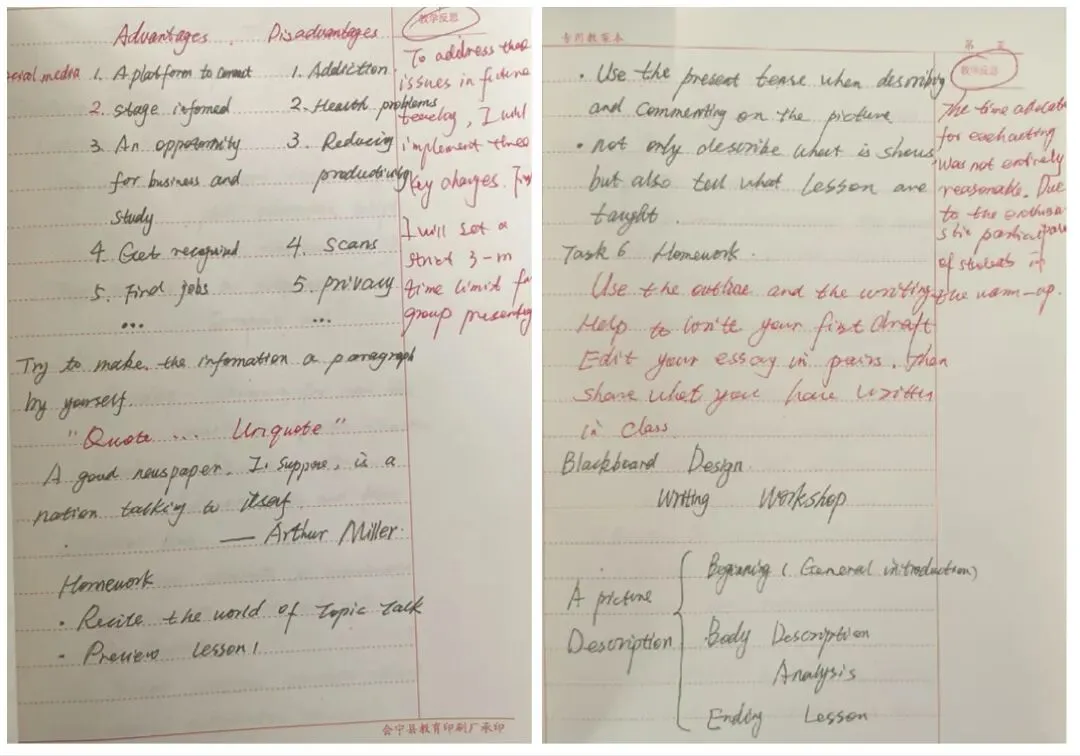 Advantages. Disadvantages
social media 1. A platform to connect 1. Addiction
2. stage infomed 2. Health problems
3. An oppotunity 3. Reducing
for business and productivity
study
4. Get recognized 4. Scans
5. Find jobs 5. privacy
... ...
Try to make the infomation a paragraph
by yourself.
"Quote ... Unquote"
A good newspaper. I suppose, is a
nation talking to itself
— Arthur Miller.
Homework
· Recite the world of Topic Talk
- Preview Lesson 1
教学反思
To address these
issues in future
I will
implement three
key changes. First
I will set a
strict 3-m
time limit for
group presenting
会宁县教育印刷厂承印
专用教案本
第 页
· Use the present tense when describing
and commenting on the picture
· not only describe what is shows
but also tell what Lesson are
taught.
Task 6 Homework.
Use the outline and the writing
Help to write your first draft
Edit your essay in pairs. then
share what you have written
in class.
Blackboard Design
Writing Workshop
A picture
Description
Beginning (General introduction)
Body Description
Analysis
Ending Lesson
教学反思
The time allocate
for each
was not entirely
reasonable. Due
to the enthusia-
stic
of students in
the warm-up.